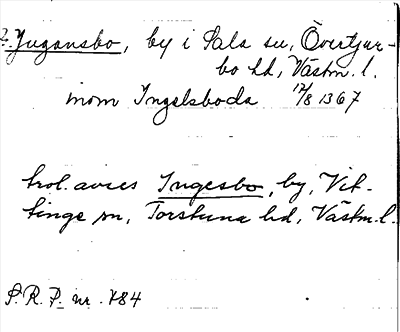 ?. Jugansbo, by i Sala sn, Övertjur-
bo hd, Västm. l.
inom Ingelsboda 12/8 1367
trol. avses Ingesbo, by, Vit-
tinge sn, Torstuna hd, Västm. l.
S.R.P. nr. 484